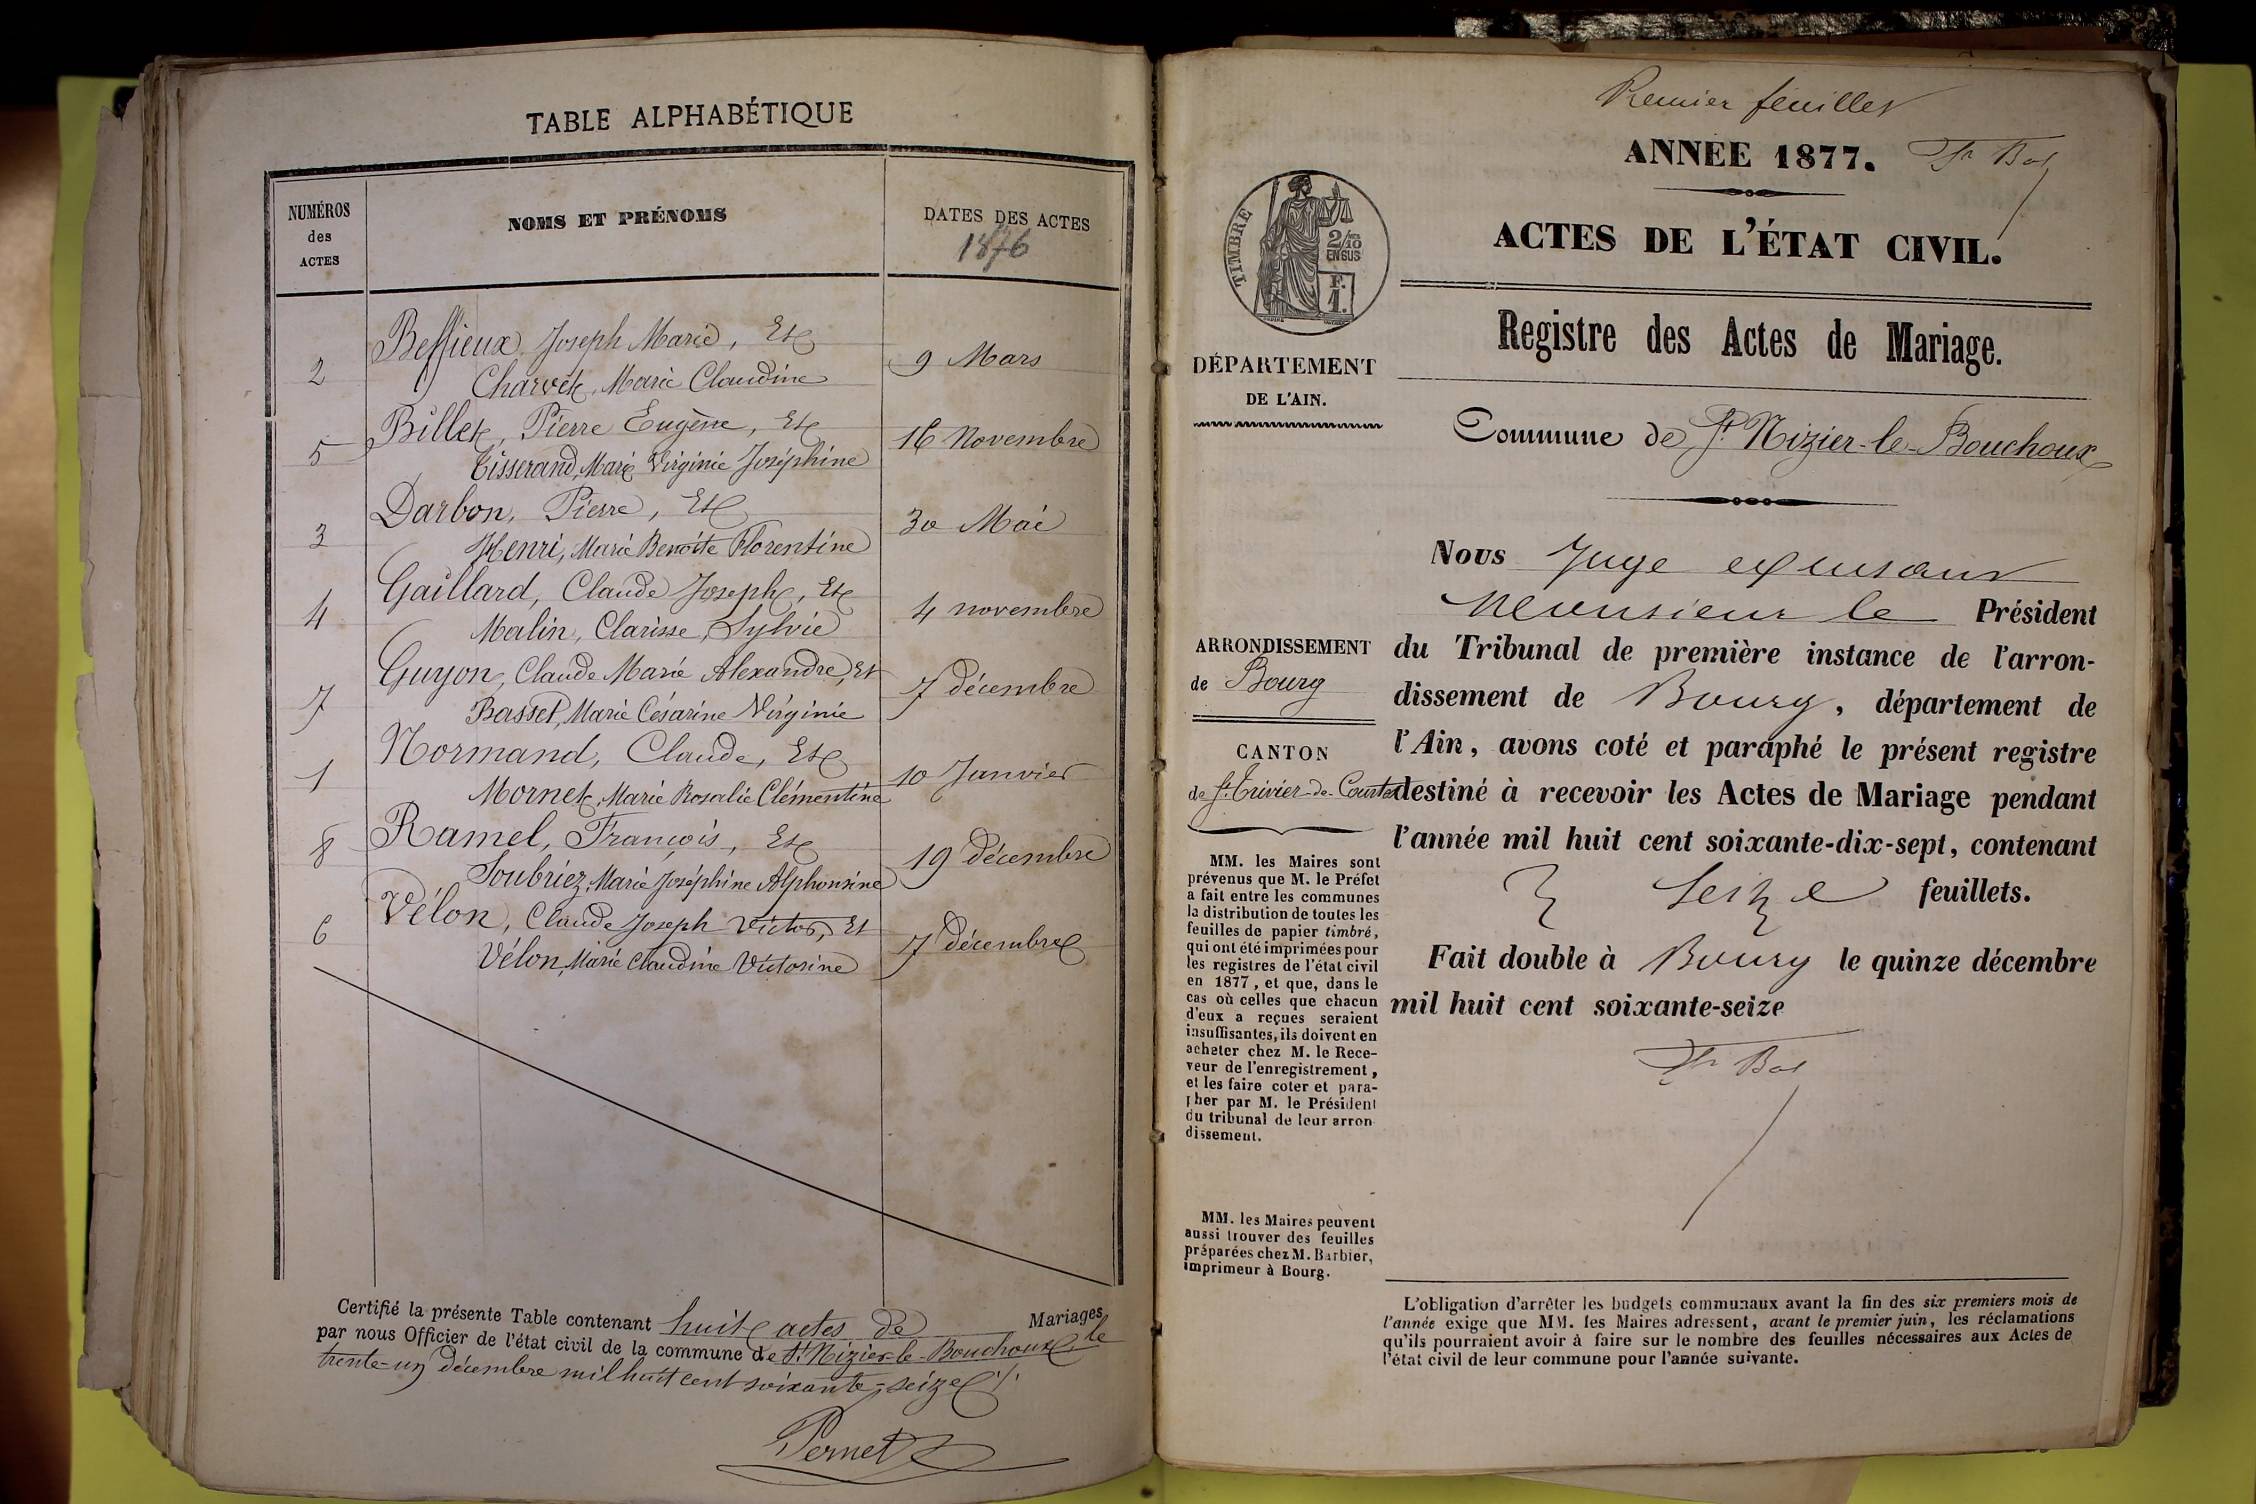 TABLE ALPHABÉTIQUE
NUMÉROS
des
ACTES
NOMS ET PRÉNOMS
DATES DES ACTES
1876
Beffieux, Joseph Marie, Et
2
9 Mars
Charvet, Marie Claudine
Billet, Pierre Eugène, Et
5
16 Novembre
Tisserand, Marie Virginie Joséphine
Darbon, Pierre, Et
3
30 Mai
Henri, Marie Benoite Florentine
Gaillard, Claude Joseph, Et
4
4 novembre
Malin, Clarisse, Sylvie
Guyon, Claude Marie Alexandre, Et
7
7 décembre
Basset, Marie Césarine Virginie
Normand, Claude, Et
1
10 Janvier
Mornet, Marie Rosalie Clémentine
Ramel, François, Et
8
19 décembre
Soubriez, Marie Joséphine Alphonsine
Vélon, Claude Joseph Victor, Et
6
7 décembre
Vélon, Marie Claudine Victorine
Certifié la présente Table contenant huit actes de Mariages,
par nous Officier de l'état civil de la commune de St Nizier-le-Bouchoux le
trente-un décembre mil huit cent soixante-seize ./.
Pernet
Premier feuillet
ANNÉE 1877.
ACTES DE L'ÉTAT CIVIL.
TIMBRE
2/10
EN SUS
F.
1.
Registre des Actes de Mariage.
DÉPARTEMENT
DE L'AIN.
Commune de St Nizier-le-Bouchoux
ARRONDISSEMENT
de Bourg
CANTON
de St Trivier-de-Courtes
MM. les Maires sont
prévenus que M. le Préfet
a fait entre les communes
la distribution de toutes les
feuilles de papier timbré,
qui ont été imprimées pour
les registres de l'état civil
en 1877, et que, dans le
cas où celles que chacun
d'eux a reçues seraient
insuffisantes, ils doivent en
acheter chez M. le Rece-
veur de l'enregistrement,
et les faire coter et para-
pher par M. le Président
du tribunal de leur arron-
dissement.
MM. les Maires peuvent
aussi trouver des feuilles
préparées chez M. Barbier,
imprimeur à Bourg.
Nous Juge
Monsieur le Président
du Tribunal de première instance de l'arron-
dissement de Bourg, département de
l'Ain, avons coté et paraphé le présent registre
destiné à recevoir les Actes de Mariage pendant
l'année mil huit cent soixante-dix-sept, contenant
seize feuillets.
Fait double à Bourg le quinze décembre
mil huit cent soixante-seize
L'obligation d'arrêter les budgets communaux avant la fin des six premiers mois de
l'année exige que MM. les Maires adressent, avant le premier juin, les réclamations
qu'ils pourraient avoir à faire sur le nombre des feuilles nécessaires aux Actes de
l'état civil de leur commune pour l'année suivante.